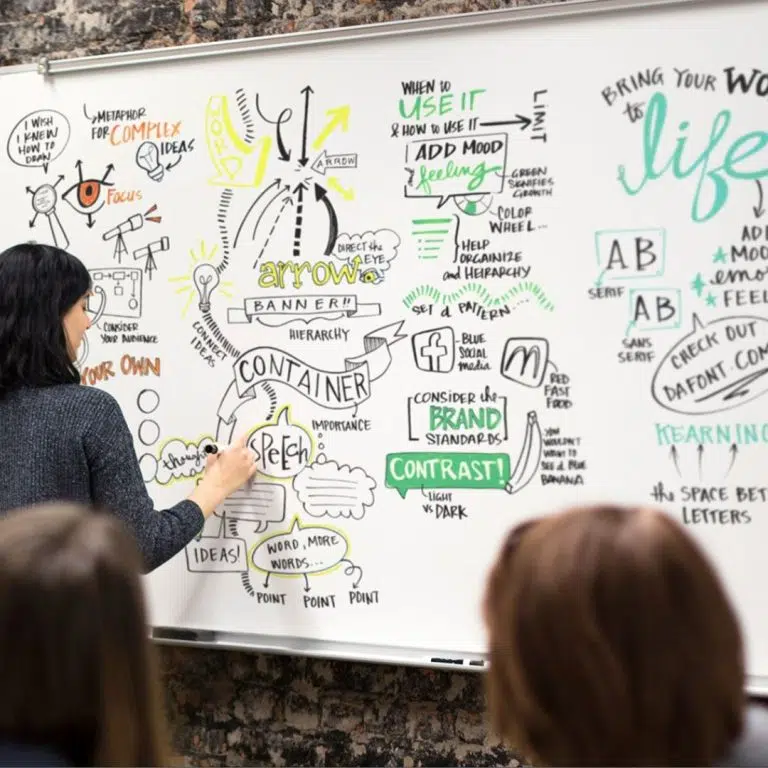 I WISH
I KNEW
HOW TO
DRAW
METAPHOR
FOR COMPLEX
IDEAS
FOCUS
CONSIDER
YOUR AUDIENCE
YOUR OWN
WORD
ARROW
DIRECT the
EYE
arrow
BANNER!!
HIERARCHY
CONNECT
IDEAS
CONTAINER
IMPORTANCE
thought
SPEECH
IDEAS!
WORD, MORE
WORDS...
POINT POINT POINT
WHEN to
USE IT
& HOW to USE IT
LIMIT
ADD MOOD
feeling
GREEN
SIGNIFIES
GROWTH
COLOR
WHEEL...
HELP
ORGAINIZE
and HEIRARCHY
SET A PATTERN...
f
BLUE
SOCIAL
media
M
RED
FAST
FOOD
CONSIDER the
BRAND
STANDARDS
CONTRAST!
LIGHT
VS DARK
YOU
WOULDN'T
WANT to
SEE A BLUE
BANANA
BRING YOUR WO
to
life
AB
SERIF
AB
SANS
SERIF
AD
MOO
emo
FEEL
CHECK OUT
DAFONT.COM
KEARNING
the SPACE BET
LETTERS